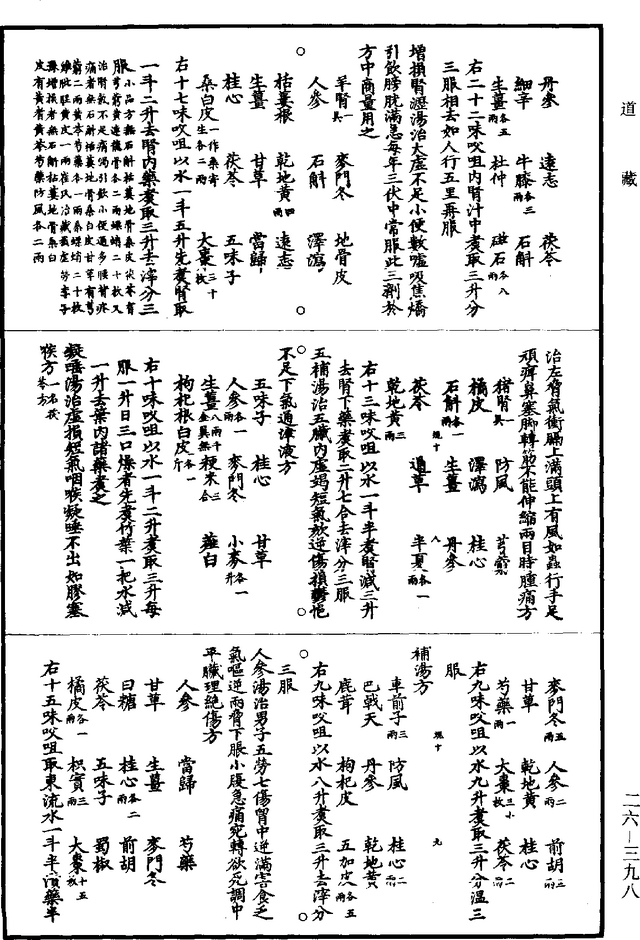 道藏
丹參　遠志　茯苓
細辛　牛膝各三兩　石斛
生薑各五兩　杜仲　磁石各八兩
右二十二味㕮咀內腎汁中煮取三升分
三服相去如人行五里再服
增損腎瀝湯治大虛不足小便數噓吸焦燋
引飲膀胱滿急每年三伏中常服此三劑於
方中商量用之
羊腎一具　麥門冬　地骨皮
人參　石斛　澤瀉
栝蔞根　乾地黃四兩　遠志
生薑　甘草　當歸
桂心　茯苓　五味子
桑白皮一作桑寄生各二兩　大棗三十枚
右十七味㕮咀以水一斗五升先煮腎取
一斗二升去腎內藥煮取三升去滓分三
服
治左脅氣衝膈上滿頭上有風如蟲行手足
頑痹鼻塞腳轉筋不能伸縮兩目時腫痛方
豬腎一具　防風　芎藭
橘皮　澤瀉　桂心
石斛各一兩　生薑　丹參
茯苓　通草　半夏各一兩
乾地黃三兩
右十三味㕮咀以水一斗半煮腎減三升
去腎下藥煮取二升七合去滓分三服
五補湯治五臟內虛竭短氣欬逆傷損鬱悒
不足下氣通津液方
五味子　桂心　甘草
人參各一兩　麥門冬　小麥各一升
生薑八兩　粳米三合　薤白
枸杞根白皮各一斤
右十味㕮咀以水一斗二升煮取三升每
服一升日三口燥者先煮竹葉一把水減
一升去葉內諸藥煮之
凝唾湯治虛損短氣咽喉凝唾不出如膠塞
喉方一名茯苓方
麥門冬五兩　人參二兩　前胡三兩
甘草　乾地黃　桂心
芍藥一兩　大棗三十枚　茯苓二兩
右九味㕮咀以水九升煮取三升分溫三
服
補湯方
車前子三兩　防風　桂心二兩
巴戟天　丹參　乾地黃
鹿茸　枸杞皮　五加皮各五兩
右九味㕮咀以水八升煮取三升去滓分
三服
人參湯治男子五勞七傷胷中逆滿害食乏
氣嘔逆兩脅下脹小腹急痛宛轉欲死調中
平臟理絕傷方
人參　當歸　芍藥
甘草　生薑　麥門冬
白糖　桂心各二兩　前胡
茯苓　五味子　蜀椒
橘皮各一兩　枳實三兩　大棗十五枚
右十五味㕮咀取東流水一斗半漬藥半
二六—三九八